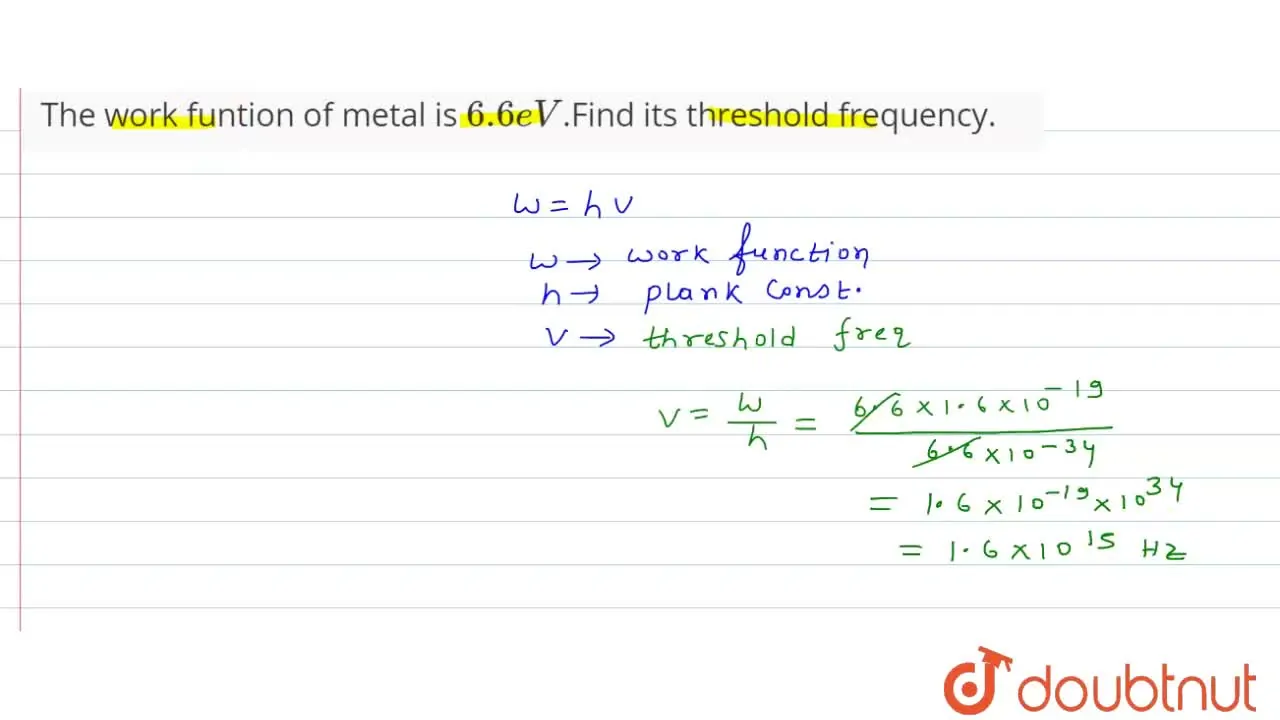 The work funtion of metal is 6.6eV.Find its threshold frequency.
W = h ν
W → work function
h → plank Const.
ν → threshold freq
ν = W/h = 6.6 × 1.6 × 10^-19 / 6.6 × 10^-34
= 1.6 × 10^-19 × 10^34
= 1.6 × 10^15 Hz
doubtnut